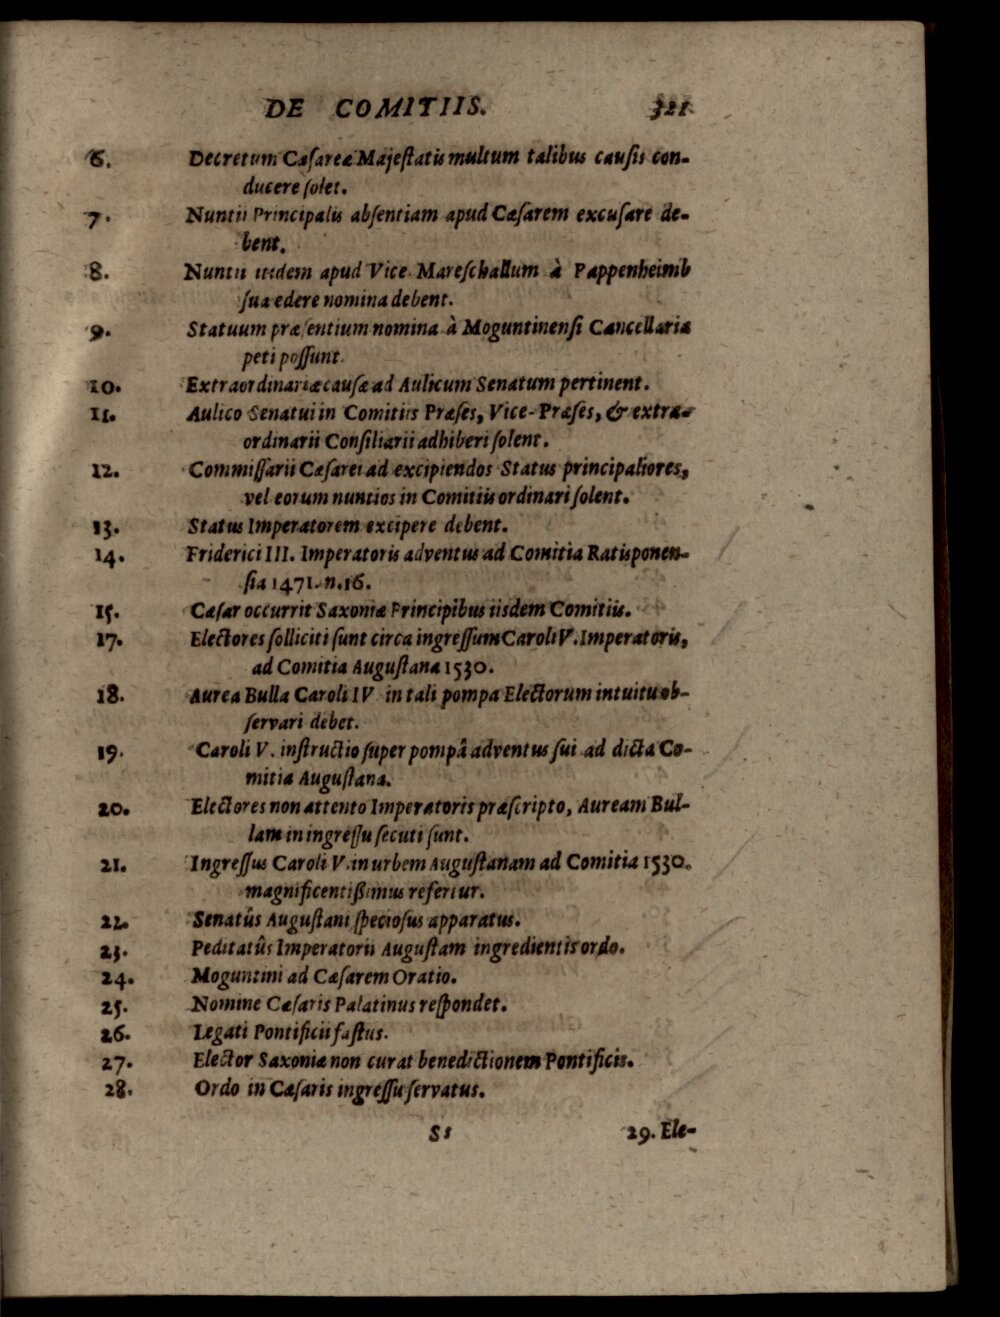 DE COMITIIS. 321
6. Decretum Cæſareæ Majeſtatis multum talibus cauſis con-
ducere ſolet.
7. Nuntii Principalis abſentiam apud Cæſarem excuſare de-
bent.
8. Nuntii iidem apud Vice Mareſchallum à Pappenheimb
ſua edere nomina debent.
9. Statuum præſentium nomina à Moguntinenſi Cancellaria
peti poſſunt.
10. Extraordinariæ cauſæ ad Aulicum Senatum pertinent.
11. Aulico Senatui in Comitiis Præſes, Vice-Præſes, & extra-
ordinarii Conſiliarii adhiberi ſolent.
12. Commiſſarii Cæſarei ad excipiendos Status principaliores,
vel eorum nuntios in Comitiis ordinari ſolent.
13. Status Imperatorem excipere debent.
14. Friderici III. Imperatoris adventus ad Comitia Ratisponen-
ſia 1471. n.16.
15. Cæſar occurrit Saxoniæ Principibus iisdem Comitiis.
17. Electores ſolliciti ſunt circa ingreſſum Caroli V. Imperatoris,
ad Comitia Auguſtana 1530.
18. Aurea Bulla Caroli IV in tali pompa Electorum intuitu ob-
ſervari debet.
19. Caroli V. inſtructio ſuper pompâ adventus ſui ad dicta Co-
mitia Auguſtana.
20. Electores non attento Imperatoris præſcripto, Auream Bul-
lam in ingreſſu ſecuti ſunt.
21. Ingreſſus Caroli V. in urbem Auguſtanam ad Comitia 1530.
magnificentißimus refertur.
22. Senatûs Auguſtani ſpecioſus apparatus.
23. Peditatûs Imperatorii Auguſtam ingredientis ordo.
24. Moguntini ad Cæſarem Oratio.
25. Nomine Cæſaris Palatinus reſpondet.
26. Legati Pontificii faſtus.
27. Elector Saxoniæ non curat benedictionem Pontificis.
28. Ordo in Cæſaris ingreſſu ſervatus.
Ss 29. Ele-